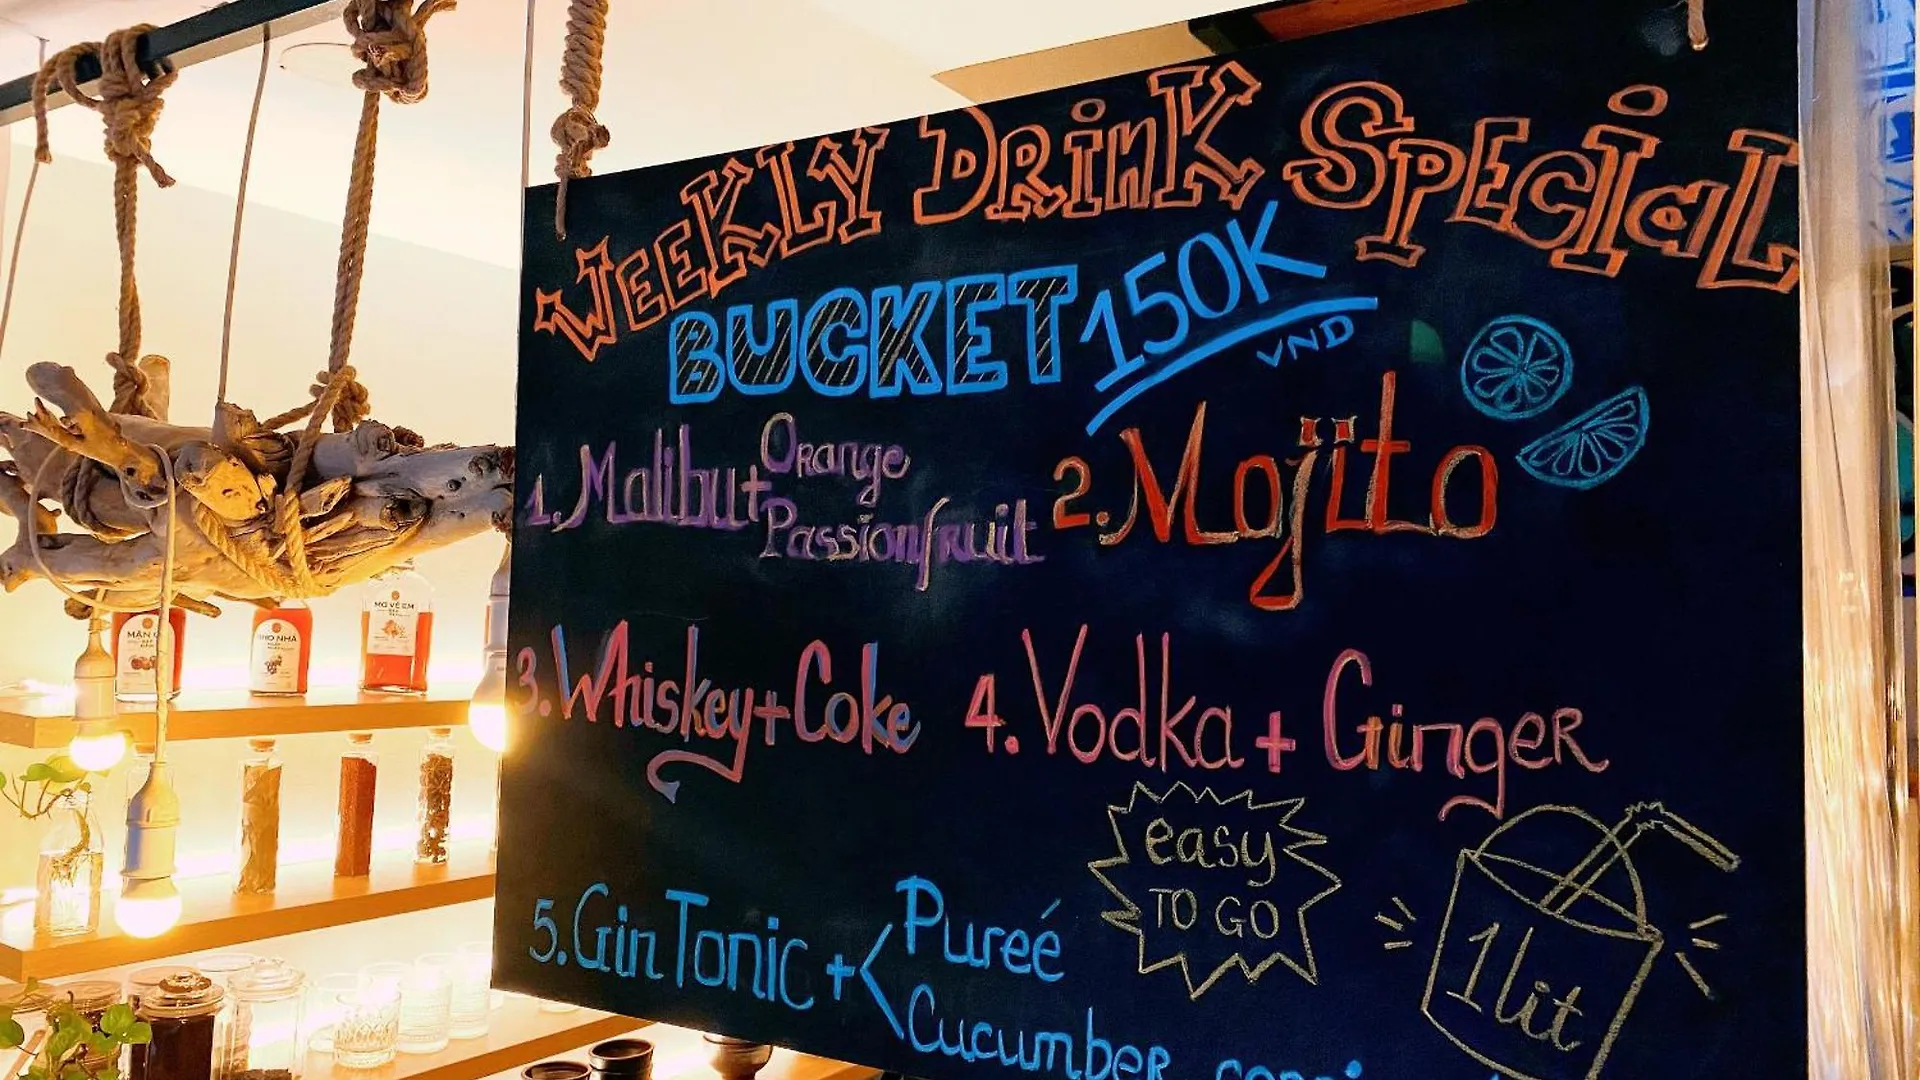 WEEKLY DRinK SPECiaL
BUCKET 150K
VND
1. Malibu + Orange
Passionfruit
2. Mojito
3. Whiskey + Coke
4. Vodka + GingeR
easy
TO GO
5. Gin Tonic + < Pureé
CucumbeR
1 lit
MƠ VỀ EM
NHO NHÀ
MẬN